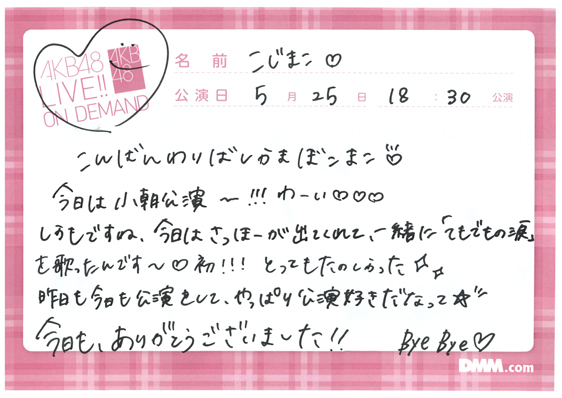 AKB48
LIVE!!
ON DEMAND
AKB
48
名前 こじまこ♡
公演日 5月25日 18:30公演
こんばんわりばしかまぼこまこ
今日は小朝公演〜!!! わーい♡♡♡
しかもですね、今日はさっほーが出てくれて、一緒に「てもでもの涙」
を歌ったんです〜♡初!!! とってもたのしかった☆☆
昨日も今日も公演をして、やっぱり公演好きだなって☆
今日も、ありがとうございました!!
Bye Bye♡
DMM.com